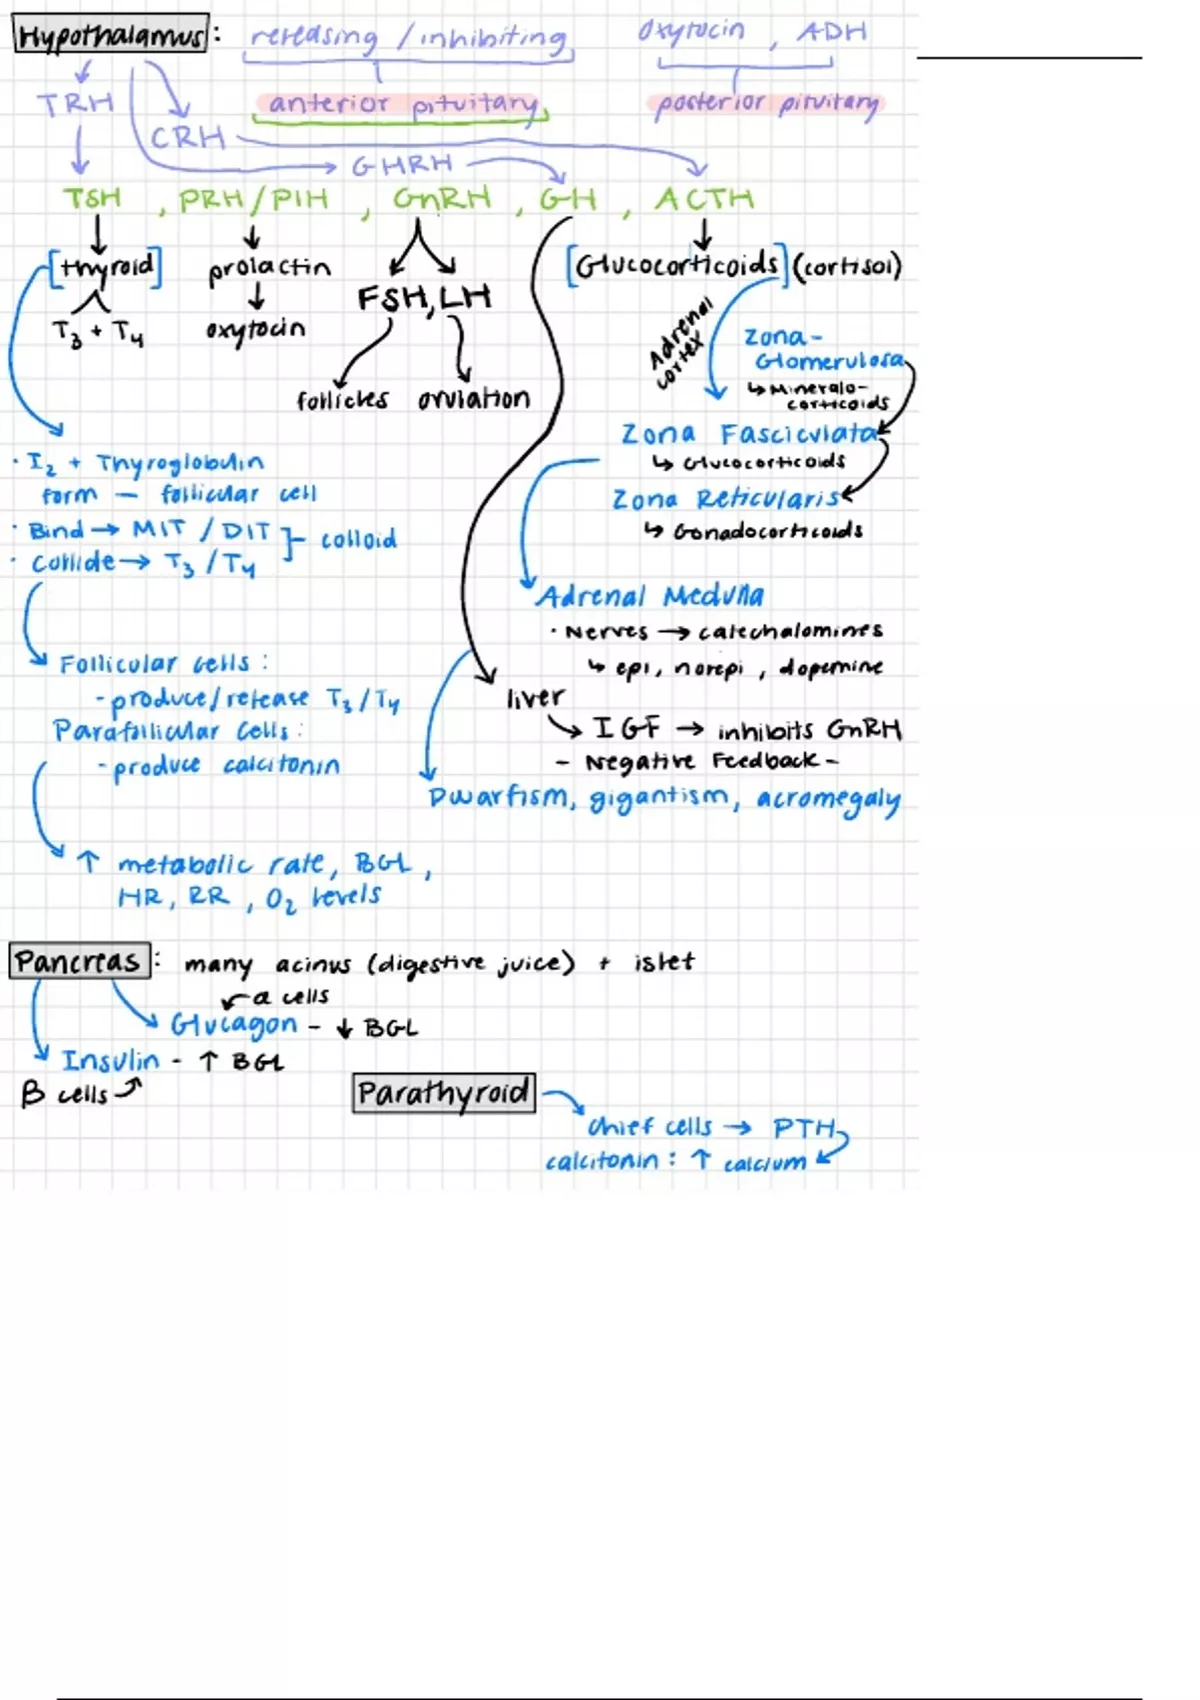 Hypothalamus: releasing / inhibiting oxytocin, ADH
TRH anterior pituitary posterior pituitary
CRH
GHRH
TSH, PRH/PIH, GnRH, GH, ACTH
[thyroid] prolactin [Glucocorticoids] (cortisol)
FSH, LH
T3 + T4 oxytocin
Adrenal cortex
Zona-
Glomerulosa
↳ Mineralo-
corticoids
follicles ovulation
Zona Fasciculata
↳ Glucocorticoids
Zona Reticularis
↳ Gonadocorticoids
· I2 + Thyroglobulin
form — follicular cell
· Bind → MIT / DIT
· collide → T3 / T4
colloid
Adrenal Medulla
· Nerves → catechalomines
↳ epi, norepi, dopemine
Follicular cells:
- produce/release T3/T4
Parafollicular cells:
- produce calcitonin
liver
→ IGF → inhibits GnRH
- Negative Feedback -
Dwarfism, gigantism, acromegaly
↑ metabolic rate, BGL,
HR, RR, O2 levels
Pancreas: many acinus (digestive juice) + islet
a cells
Glucagon - ↓ BGL
Insulin - ↑ BGL
B cells
Parathyroid
chief cells → PTH
calcitonin: ↑ calcium